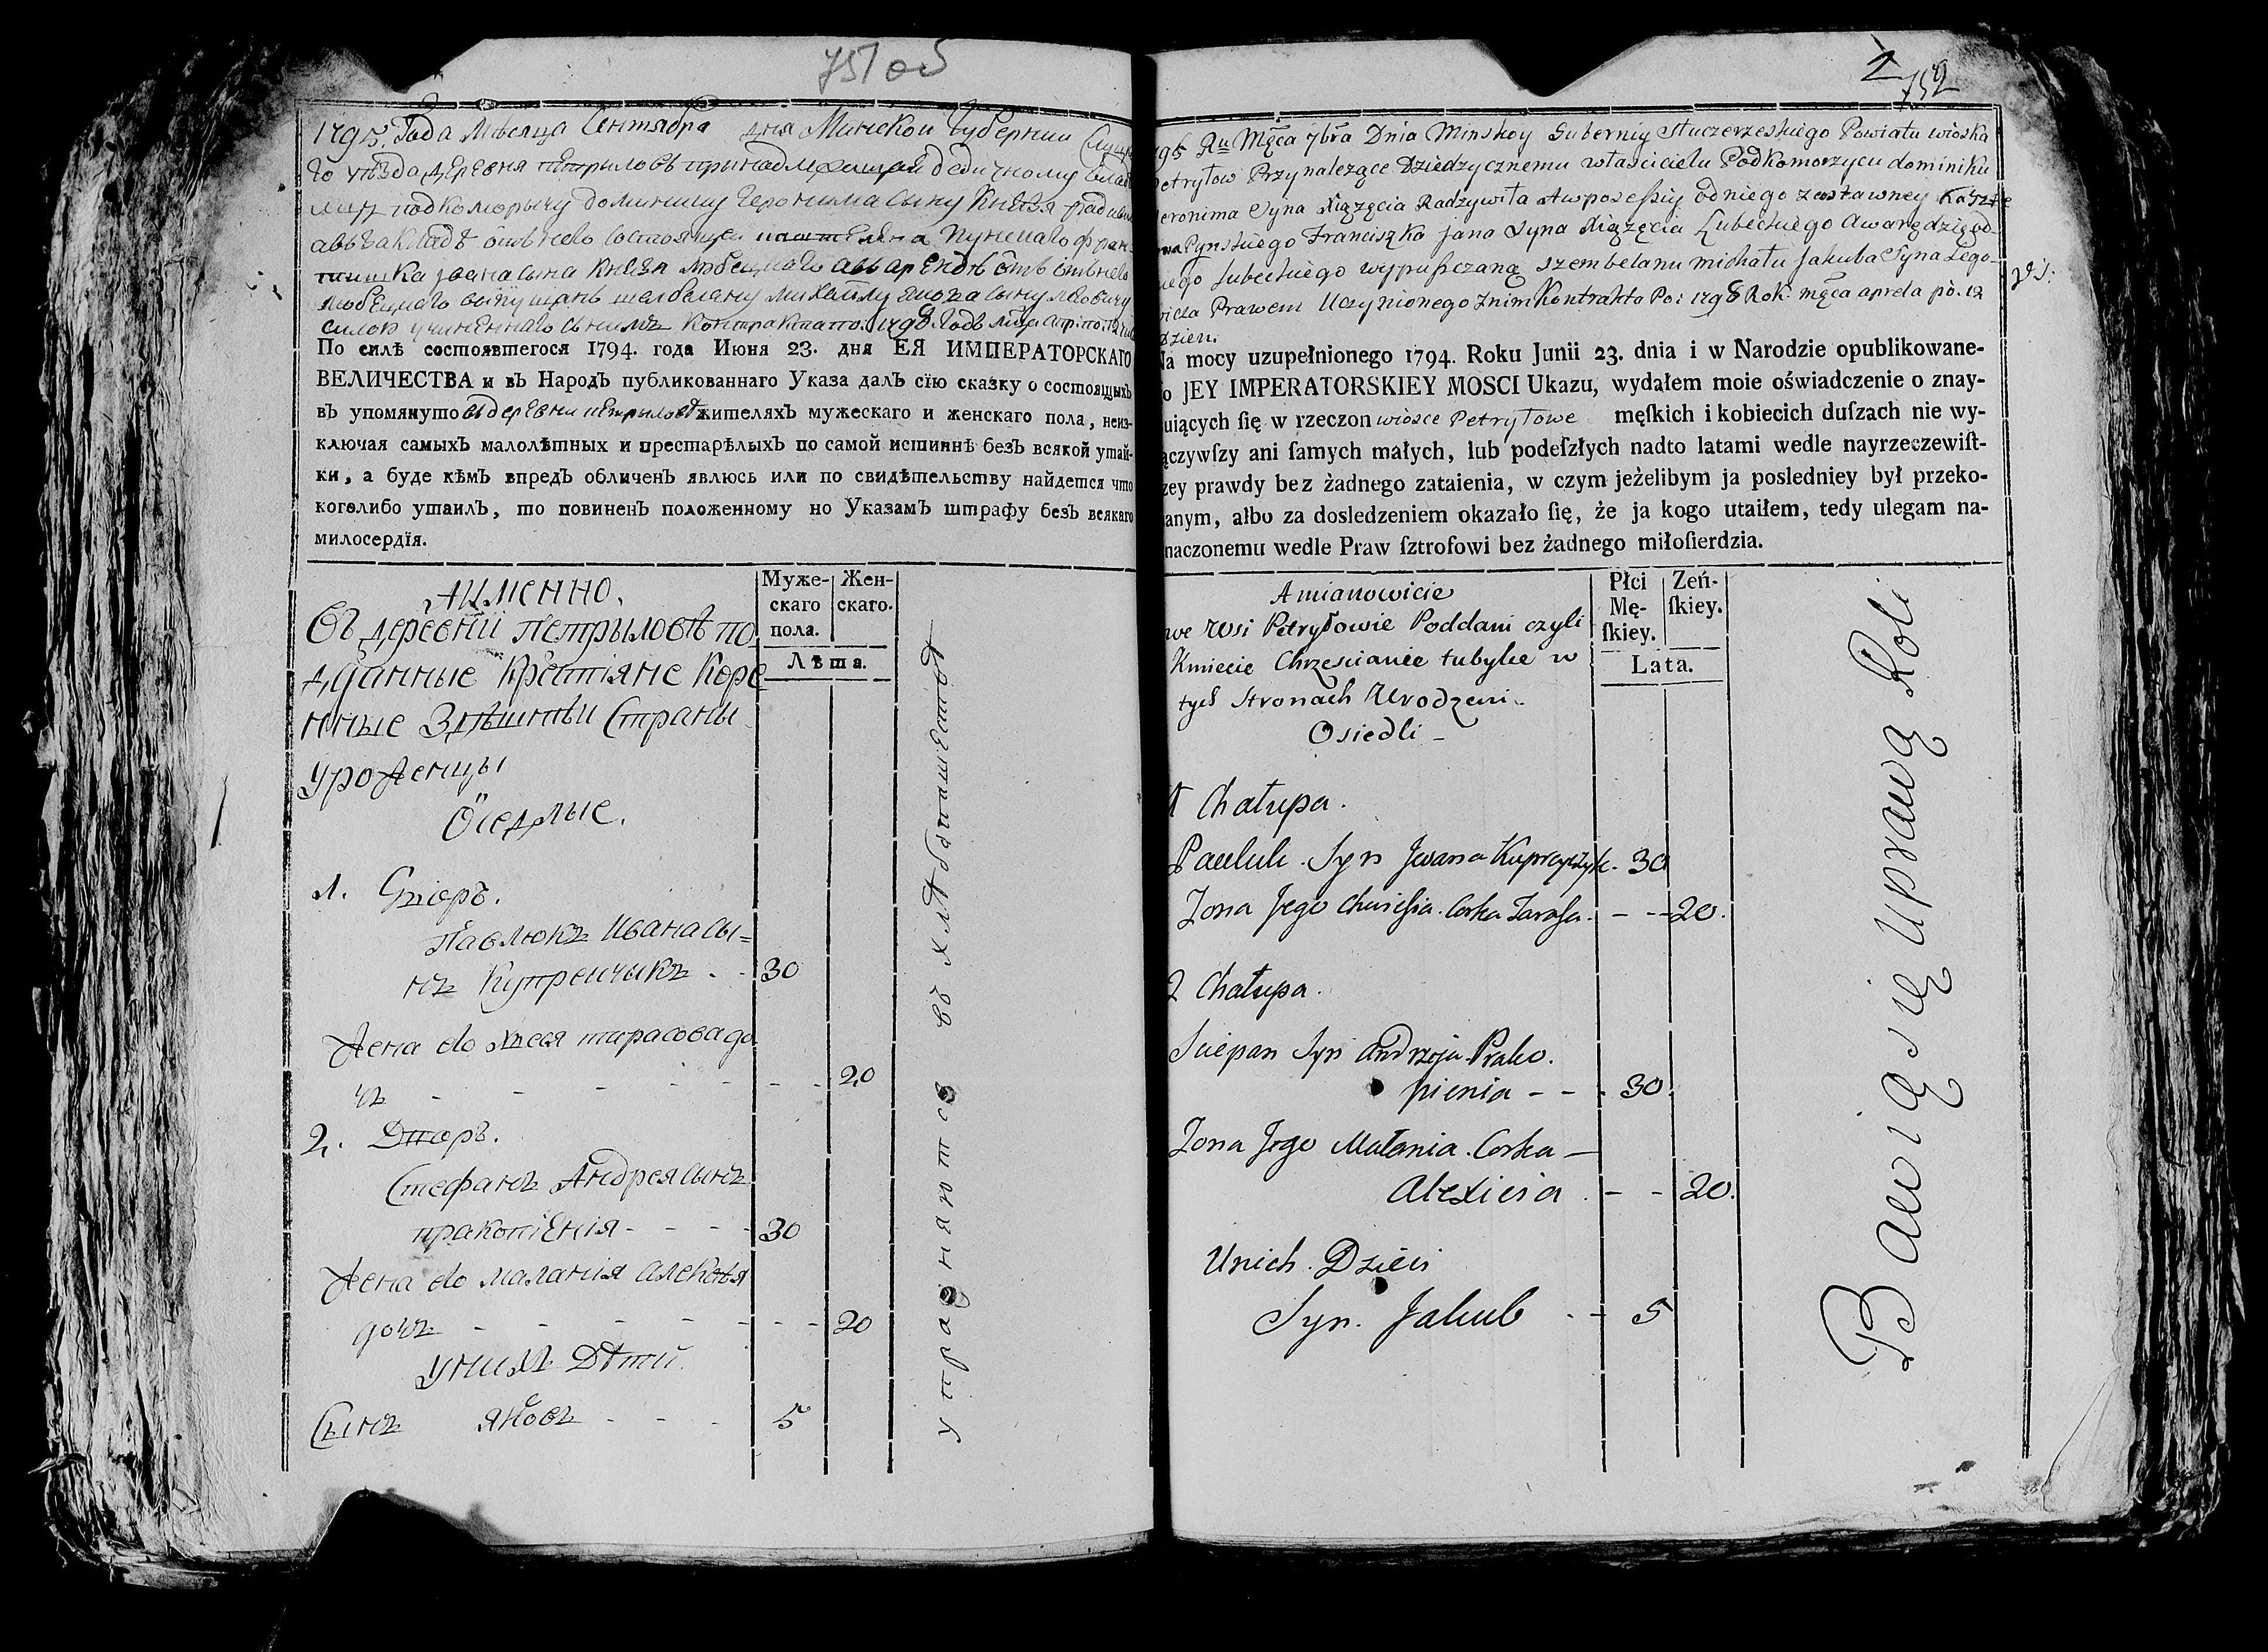 751 об
1795. Года Мѣсяца Сентября дня Минской Губернии
го уѣзда деревня петрыловъ принадлежащая дедичному
подкоморычу доминику Геронима сыну Князя
авъ закладѣ отъ него состоящеи Пунскаго
Ивана сына Князя любецкаго авъ арендѣ отъ
любецкаго выпущанъ шамбеляну михайлу якова сыну
силою учиненнаго съ нимъ контракта по 1798 годъ
По силѣ состоявшегося 1794. года Июня 23. дня ЕЯ ИМПЕРАТОРСКАГО
ВЕЛИЧЕСТВА и въ Народъ публикованнаго Указа далъ сїю сказку о состоящыхъ
въ упомянуто въ деревни петрыловѣ жителяхъ мужескаго и женскаго пола, неиз-
ключая самыхъ малолѣтныхъ и престарѣлыхъ по самой истиннѣ безъ всякой утай-
ки, а буде кѣмъ впредъ обличенъ явлюсь или по свидѣтельству найдется что
коголибо утаилъ, то повиненъ положенному по Указамъ штрафу безъ всякаго
милосердїя.
Аименно.
Муже-
скаго
пола.
Жен-
скаго.
Лѣта.
Въ деревни петрыловѣ по
дданные крестіяне коре
нные Здѣшнѣи Страны
урожденцы
Оседлые.
1. Дворъ.
Павлюкъ Ивана сы=
нъ Купрейчикъ - 30
Жена его тарасова до
чь - - - - - 20
2. Дворъ.
Стефанъ Андрея сынъ
пракопіеня - - - 30
Жена его маланія
дочь - - - - - 20
У нихъ Дѣти.
Сынъ яковъ - - - 5
упражняются въ хлѣбопашествѣ
2
752
95 Ru Mca 7bra Dnia Minskoy Guberniy Słuczerzeskiego Powiatu wioska
etryłow Przynalezące Dziedzycznemu właścicielu Podkomorzycu dominiku
eronima Syna Xiązęcia Radzywiła Awposesiy od niego zastawney
Pynskiego Franciszka Jana Syna Xiązęcia Lubeckiego Awarędzie od
iego Lubeckiego wypuszczaną szembelanu michału Jakuba Syna
Prawem Uczynionego znim Kontrakta Po: 1798 Rok: męca aprela po. 12
dzien.
Na mocy uzupełnionego 1794. Roku Junii 23. dnia i w Narodzie opublikowane-
o JEY IMPERATORSKIEY MOSCI Ukazu, wydałem moie oświadczenie o znay-
uiących ſię w rzeczon wiosce Petryłowe męſkich i kobiecich duſzach nie wy-
ączywſzy ani ſamych małych, lub podeſzłych nadto latami wedle nayrzeczewiſt-
zey prawdy bez żadnego zataienia, w czym jeżelibym ja posledniey był przeko-
anym, albo za dosledzeniem okazało ſię, że ja kogo utaiłem, tedy ulegam na-
naczonemu wedle Praw ſztrofowi bez żadnego miłoſierdzia.
Amianowicie
Płci
Mę-
ſkiey.
Zeń-
ſkiey.
Lata.
we wsi Petryłowie Poddani czyli
Kmiecie Chrzescianie tubylce w
tych Stronach Urodzeni.
Osiedli -
1 Chałupa.
Pauluk. Syn Jwana Kuprayczyk. 30
Zona Jego Corka Tarasa. - - 20.
2 Chałupa.
Sciepan Syn Andrzeja Prako.
pienia - - - 30.
Zona Jego Małania. Corka -
Alexieia - - 20.
Unich. Dzieci
Syn. Jakub - - 5
Bawią się uprawą Roli